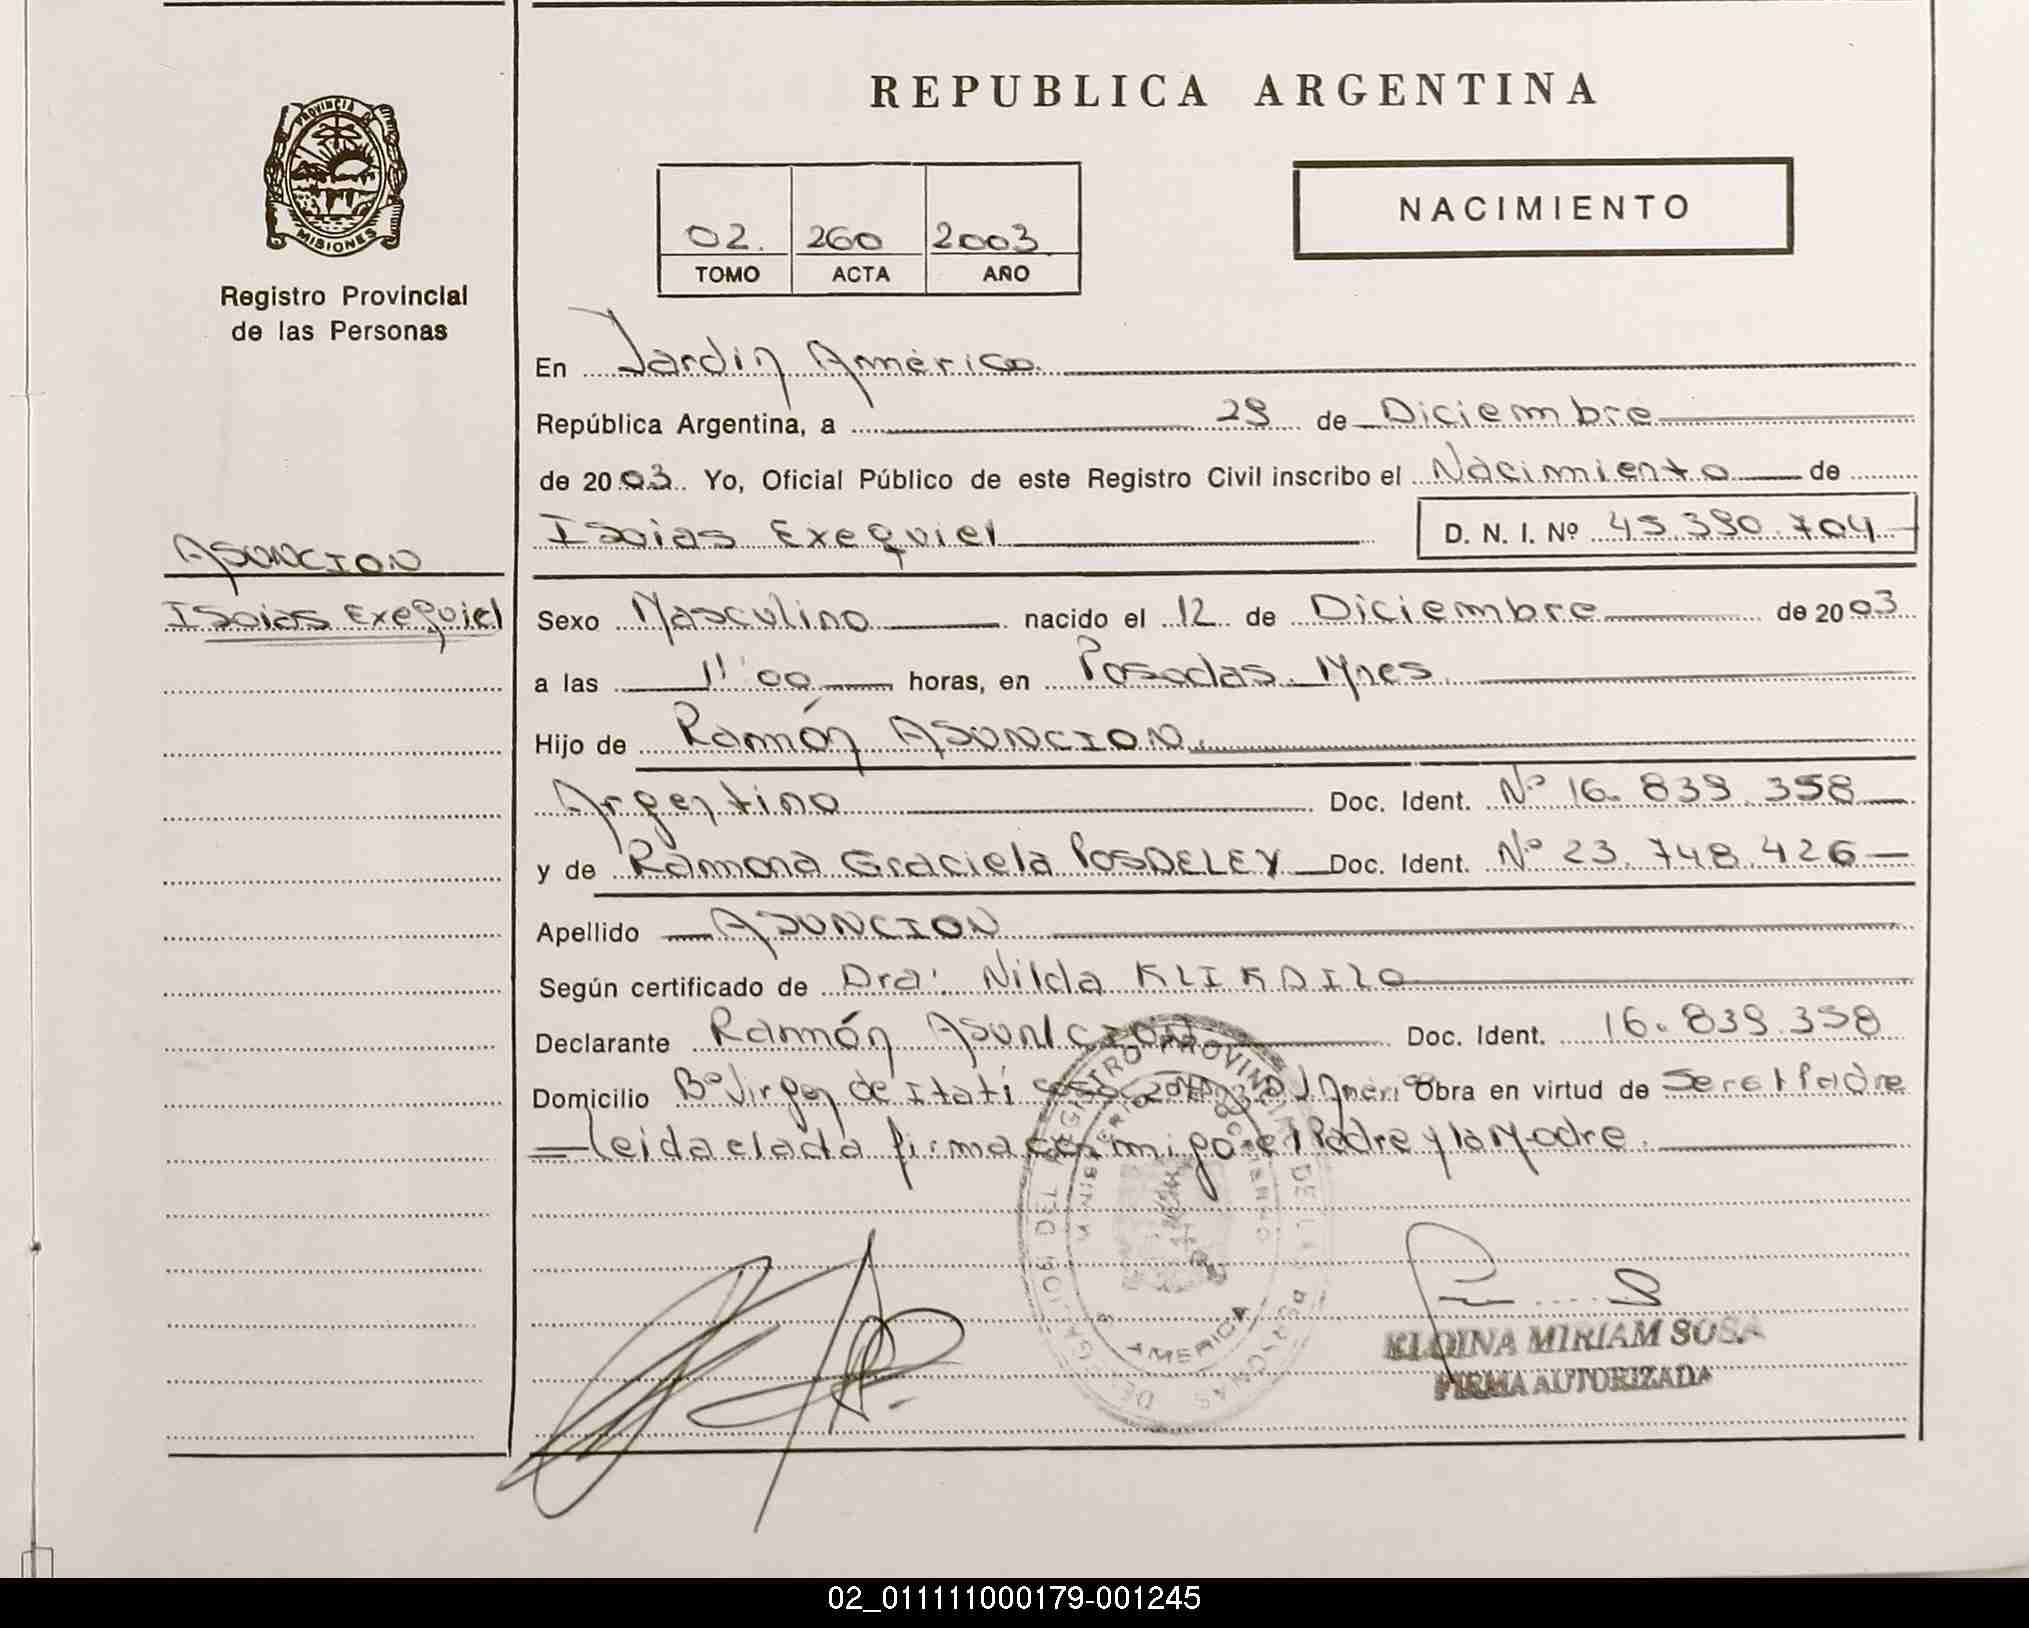 REPUBLICA ARGENTINA
PROVINCIA DE
MISIONES
Registro Provincial
de las Personas
02. 260 2003
TOMO ACTA AÑO
NACIMIENTO
En Jardín América
República Argentina, a 29 de Diciembre
de 2003 Yo, Oficial Público de este Registro Civil inscribo el Nacimiento de
Isaias Exequiel D. N. I. Nº 45.390.704
ASUNCION
Isaias Exequiel
Sexo Masculino nacido el 12 de Diciembre de 2003
a las 11'00 horas, en Posadas. Mnes
Hijo de Ramón ASUNCION.
Argentino Doc. Ident. Nº 16.839.358
y de Ramona Graciela POSDELEY Doc. Ident. Nº 23.748.426
Apellido ASUNCION
Según certificado de Dra. Nilda
Declarante Ramón ASUNCION Doc. Ident. 16.839.358
Domicilio Bº Virgen de Itatí J. Améri Obra en virtud de Ser el Padre
Leida el acta firma conmigo el Padre y la Madre.
AMERICA
ELOINA MIRIAM SOSA
FIRMA AUTORIZADA
02_011111000179-001245